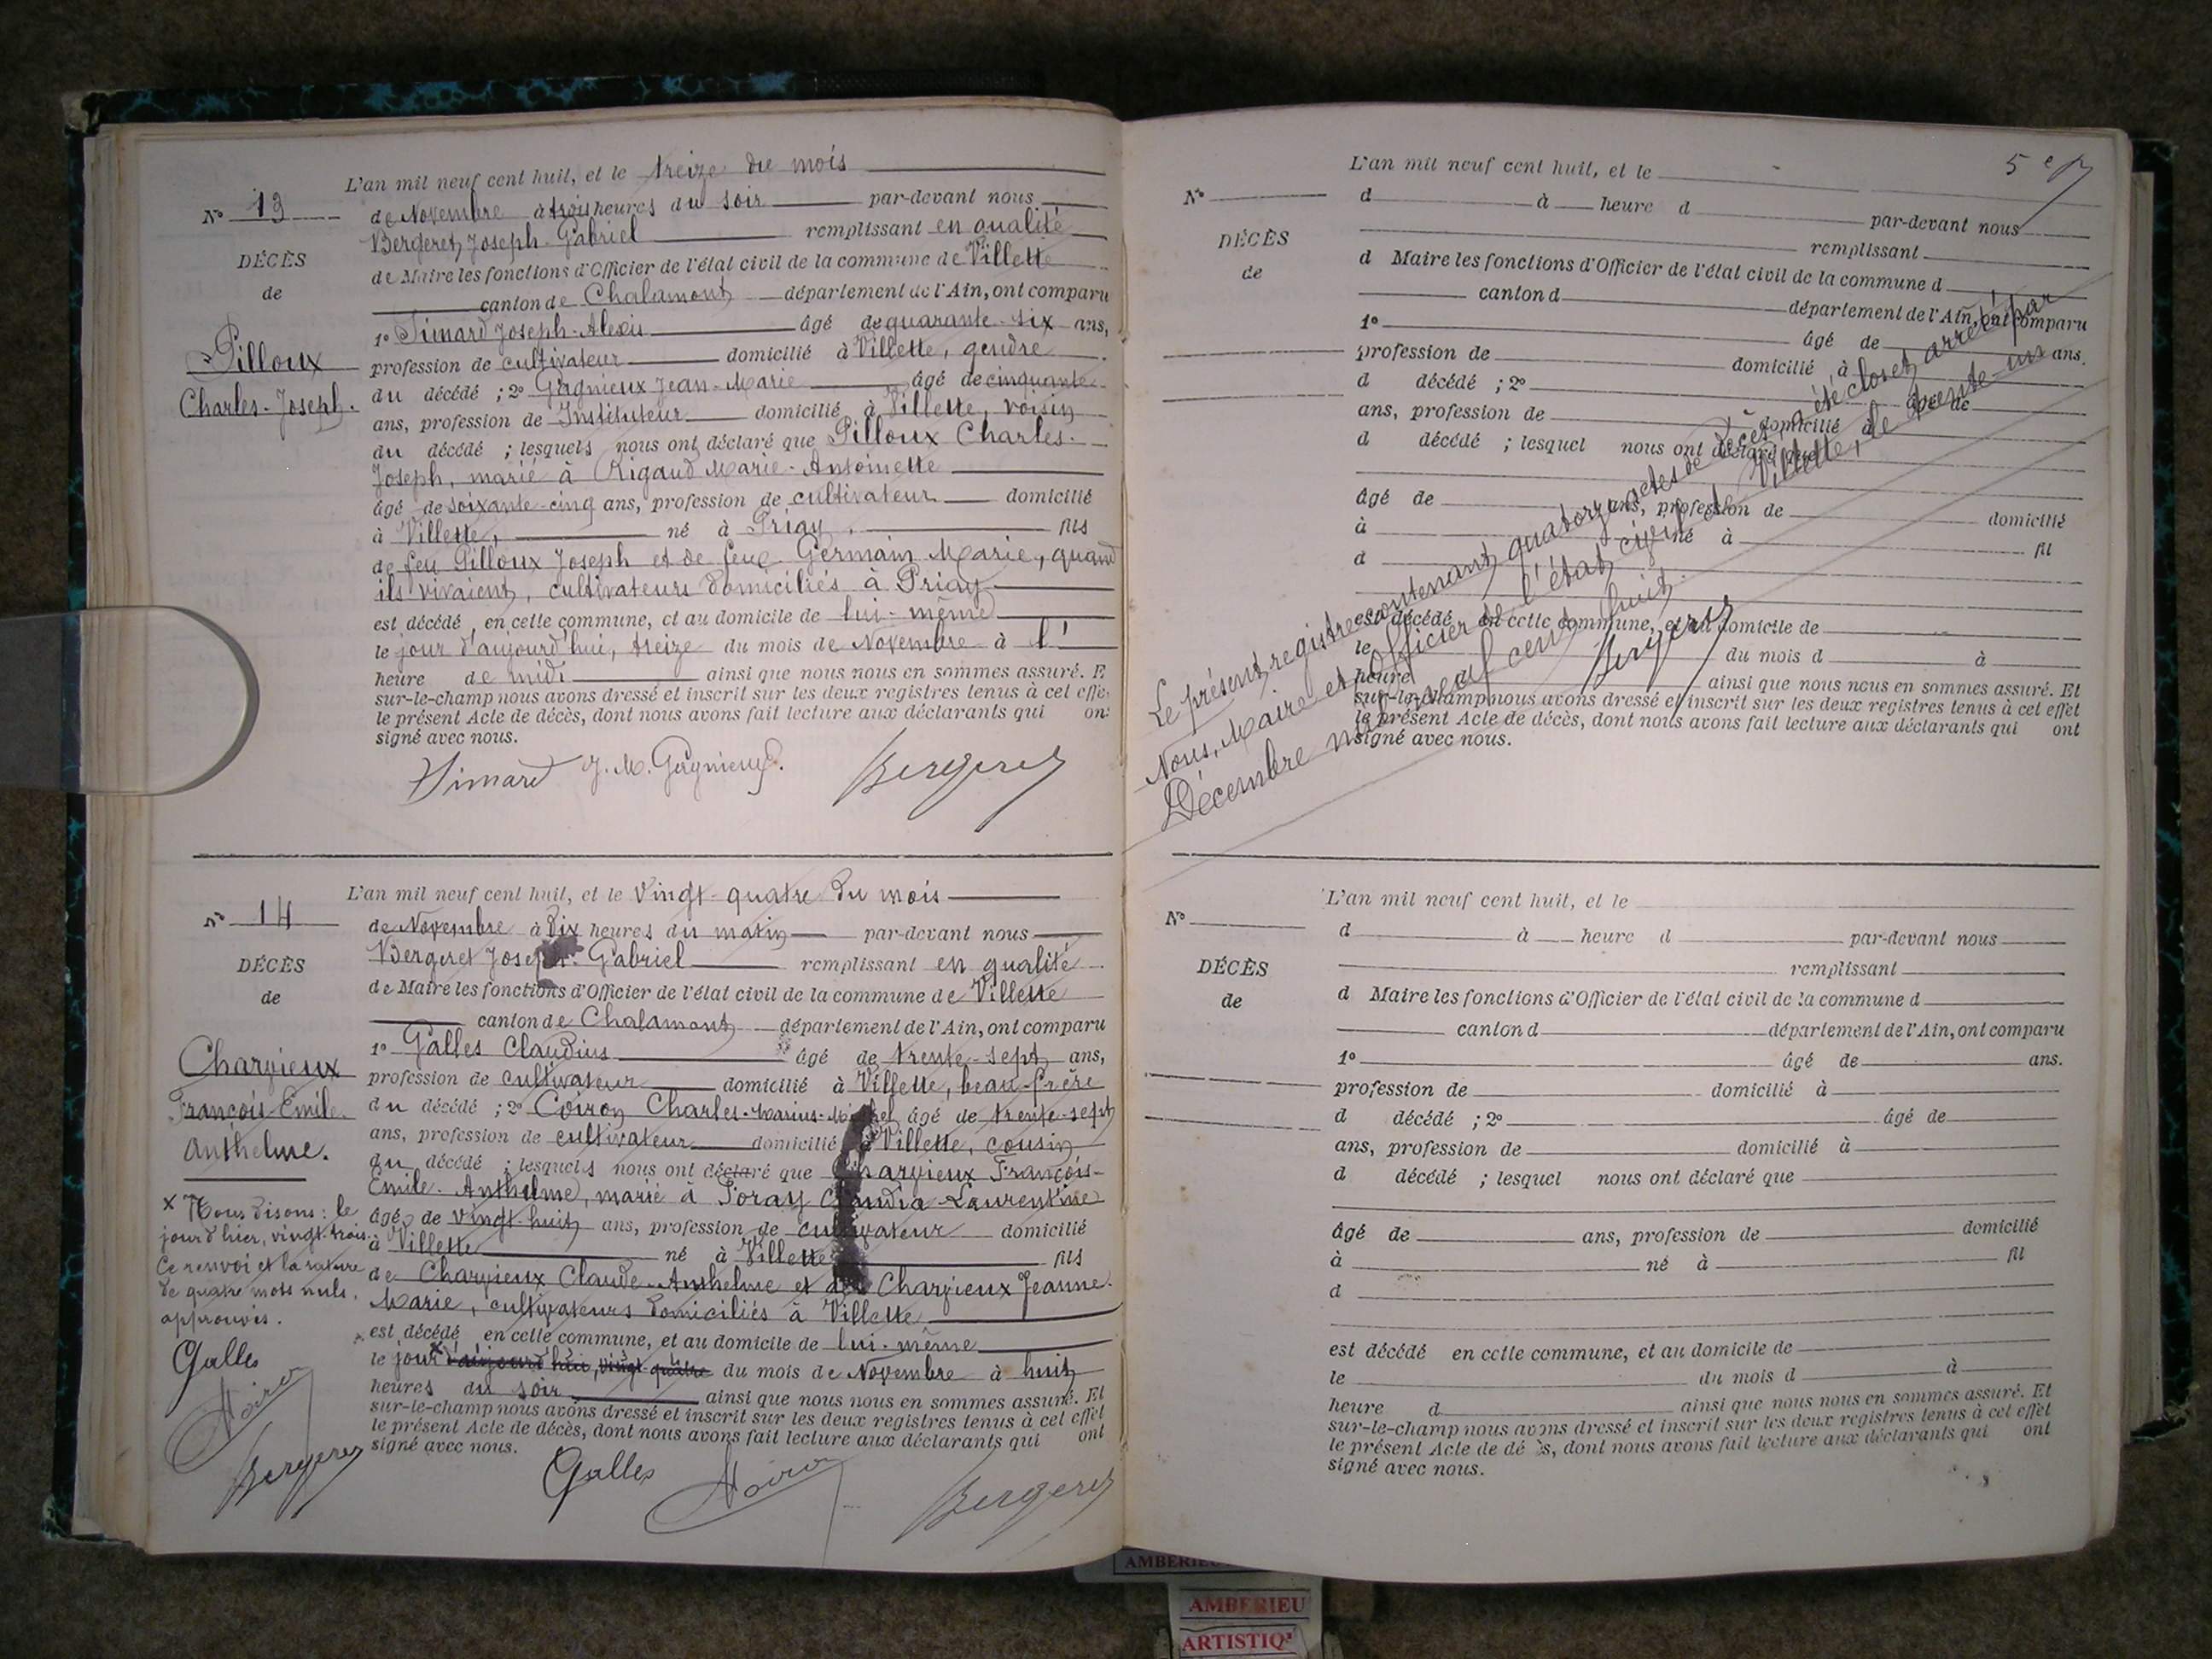 L'an mil neuf cent huit, et le treize du mois
N° 13
de Novembre à trois heures du soir par-devant nous
Bergeret Joseph-Gabriel remplissant en qualité
DÉCÈS
de Maire les fonctions d'Officier de l'état civil de la commune de Villette
de
canton de Chalamont département de l'Ain, ont comparu
1° Simard Joseph-Alexis âgé de quarante-six ans,
Pilloux
profession de cultivateur domicilié à Villette, gendre
Charles-Joseph.
du décédé ; 2° Gagnieux Jean-Marie âgé de cinquante
ans, profession de Instituteur domicilié à Villette, voisin
du décédé ; lesquels nous ont déclaré que Pilloux Charles-
Joseph, marié à Rigaud Marie-Antoinette
âgé de soixante-cinq ans, profession de cultivateur domicilié
à Villette, né à Priay, fils
de feu Pilloux Joseph et de feue Germain Marie, quand
ils vivaient, cultivateurs domiciliés à Priay
est décédé en cette commune, et au domicile de lui-même
le jour d'aujourd'hui, treize du mois de Novembre à l'
heure de midi ainsi que nous nous en sommes assuré. E
sur-le-champ nous avons dressé et inscrit sur les deux registres tenus à cet effe
le présent Acte de décès, dont nous avons fait lecture aux déclarants qui on
signé avec nous.
Simard J. M. Gagnieux. Bergeret
L'an mil neuf cent huit, et le vingt-quatre du mois
N° 14
de Novembre à dix heures du matin par-devant nous
Bergeret Joseph-Gabriel remplissant en qualité
DÉCÈS
de Maire les fonctions d'Officier de l'état civil de la commune de Villette
de
canton de Chalamont département de l'Ain, ont comparu
1° Galles Claudius âgé de trente-sept ans,
Charvieux
profession de cultivateur domicilié à Villette, beau-frère
François-Emile-
du décédé ; 2° Coiron Charles-Marius-Michel âgé de trente-sept
Anthelme.
ans, profession de cultivateur domicilié à Villette, cousin
du décédé ; lesquels nous ont déclaré que Charvieux François-
Emile-Anthelme, marié à Foray Claudia-Laurentine
âgé de vingt-huit ans, profession de cultivateur domicilié
à Villette né à Villette fils
de Charvieux Claude-Anthelme et de Charvieux Jeanne-
Marie, cultivateurs domiciliés à Villette
est décédé en cette commune, et au domicile de lui-même
le jour x d'aujourd'hui, vingt-quatre du mois de Novembre à huit
heures du soir ainsi que nous nous en sommes assuré. Et
sur-le-champ nous avons dressé et inscrit sur les deux registres tenus à cet effet
le présent Acte de décès, dont nous avons fait lecture aux déclarants qui ont
signé avec nous.
Galles Bergeret
x Nous disons : le
jour d'hier, vingt-trois.
Ce renvoi et la rature
de quatre mots nuls,
approuvés.
Galles
Bergeret
5e
L'an mil neuf cent huit, et le
N°
d à heure d par-devant nous
remplissant
DÉCÈS
d Maire les fonctions d'Officier de l'état civil de la commune d
de
canton d département de l'Ain, ont comparu
1° âgé de ans.
profession de domicilié à
d décédé ; 2° âgé de
ans, profession de domicilié à
d décédé ; lesquel nous ont déclaré que
âgé de ans, profession de domicilié
à né à fil
d
est décédé en cette commune, et au domicile de
le du mois d à
heure d ainsi que nous nous en sommes assuré. Et
sur-le-champ nous avons dressé et inscrit sur les deux registres tenus à cet effet
le présent Acte de décès, dont nous avons fait lecture aux déclarants qui ont
signé avec nous.
Le présent registre contenant quatorze actes de Décès, a été clos et arrêté par
Nous, Maire et Officier de l'état civil de Villette, le trente-un
Décembre mil neuf cent huit.
Bergeret
L'an mil neuf cent huit, et le
N°
d à heure d par-devant nous
remplissant
DÉCÈS
d Maire les fonctions d'Officier de l'état civil de la commune d
de
canton d département de l'Ain, ont comparu
1° âgé de ans.
profession de domicilié à
d décédé ; 2° âgé de
ans, profession de domicilié à
d décédé ; lesquel nous ont déclaré que
âgé de ans, profession de domicilié
à né à fil
d
est décédé en cette commune, et au domicile de
le du mois d à
heure d ainsi que nous nous en sommes assuré. Et
sur-le-champ nous avons dressé et inscrit sur les deux registres tenus à cet effet
le présent Acte de dé s, dont nous avons fait lecture aux déclarants qui ont
signé avec nous.
AMBERIEU
AMBERIEU
ARTISTIQ